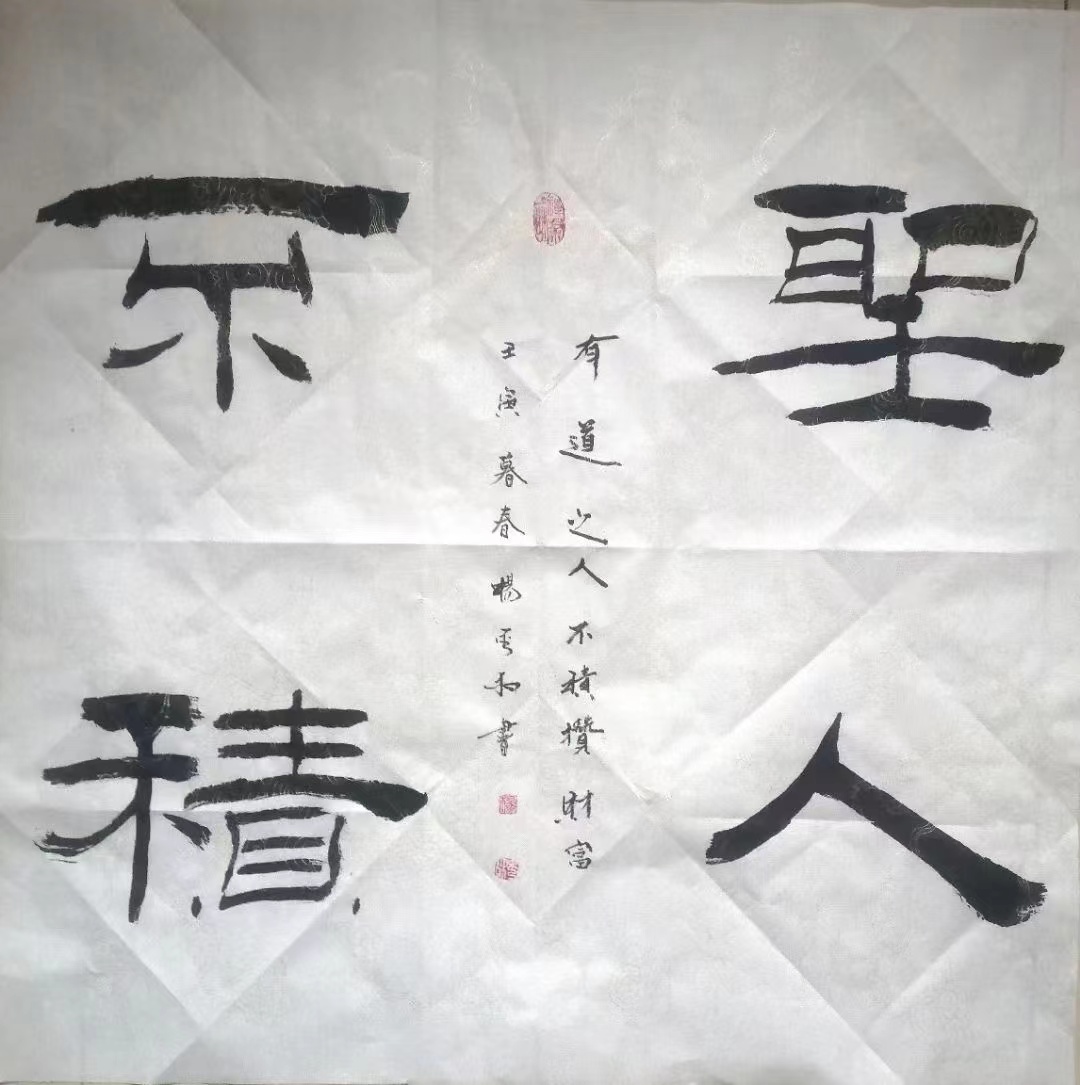 聖人
不積
有道之人不積攢財富
壬寅暮春楊
書